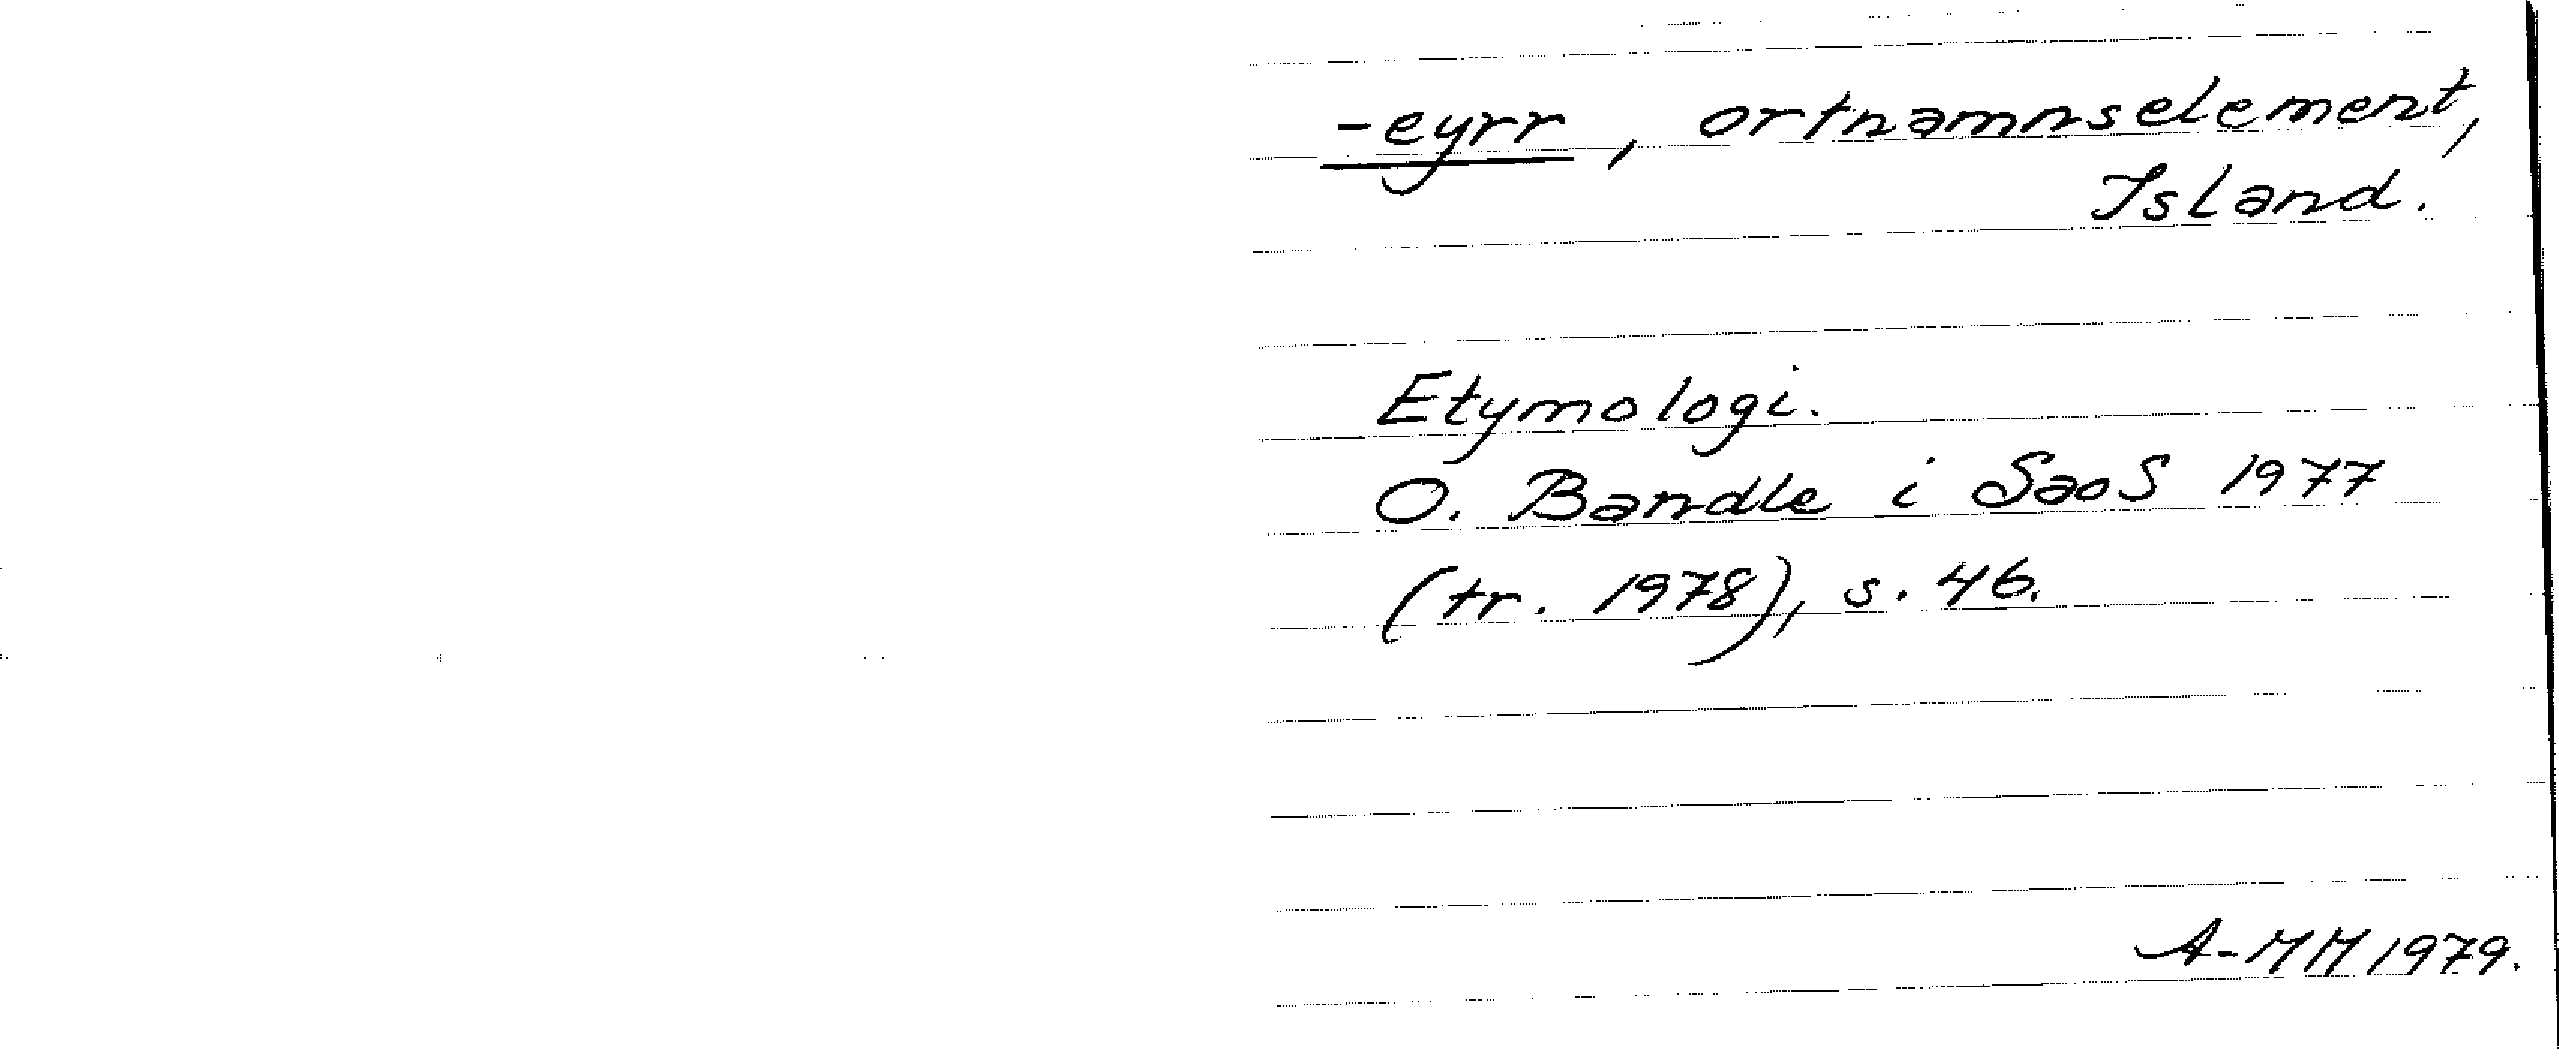 -eyrr, ortnamnselement,
Island.
Etymologi.
O. Bandle i SaoS 1977
(tr. 1978), s. 46.
A-MM 1979.